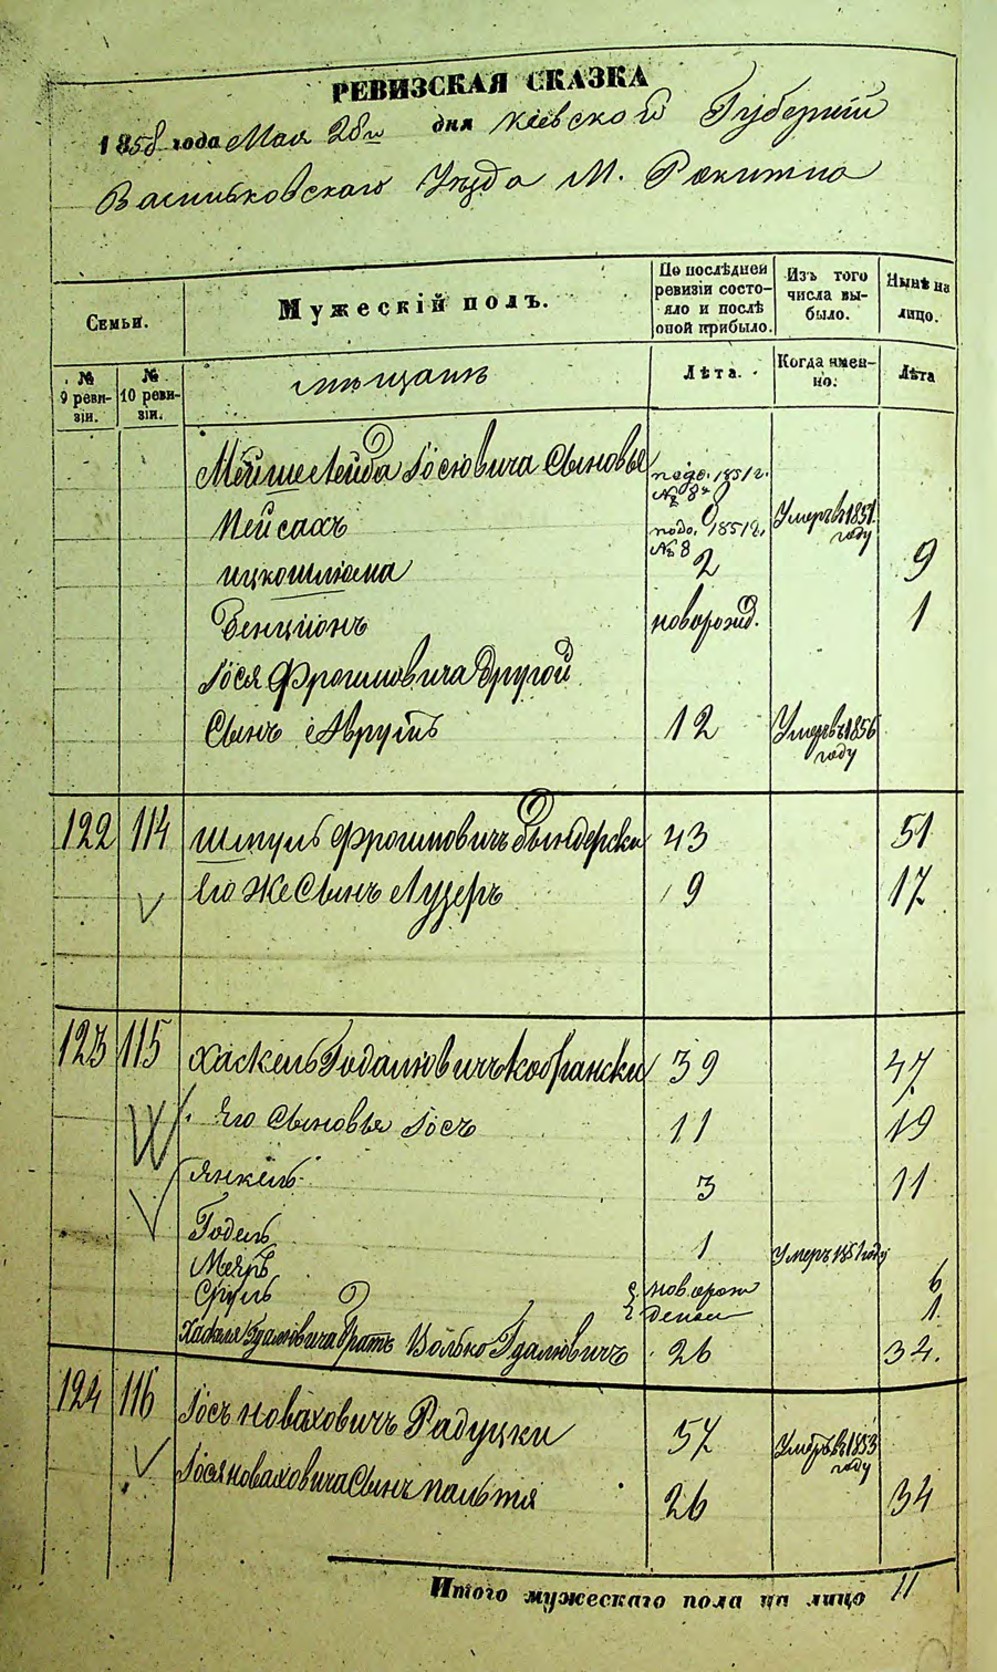 РЕВИЗСКАЯ СКАЗКА
1858 года Мая 28го дня Кіевской Губерніи
Васильковскаго Уѣзда М. Ракитна
Семьи.
Мужескій полъ.
По послѣдней ревизіи состояло и послѣ оной прибыло.
Изъ того числа выбыло.
Нынѣ на лицо.
№ 9 ревизіи.
№ 10 ревизіи.
мѣщанъ
Лѣта.
Когда именно.
Лѣта
Мейше Лейба Іосіовича Сыновья
1851 г. № 8
Пейсахъ 1851 г. № 8 Умеръ въ 1851 году
Ицкошлюма 2 9
Бенціонъ новорожд. 1
Іося Фроимовича другой
Сынъ Аврумъ 12 Умеръ въ 1856 году
122 114 Шмуль Фроимовичъ Бындерски 43 51
Его же Сынъ Лузеръ 9 17
123 115 Хаскель Годаліовичъ Кобрански 39 47
Его Сыновья Іосъ 11 19
Янкель 3 11
Годель 1 Умеръ 1851 году
Меяръ новорож 6
Сруль денъ 1
Хаскеля Гдаліовича братъ Волько Гдаліовичъ 26 34.
124 116 Іосъ Новаховичъ Радуцки 57 Умеръ въ 1853 году
Іося Новаховича Сынъ Пальтя 26 34
Итого мужескаго пола на лицо 11